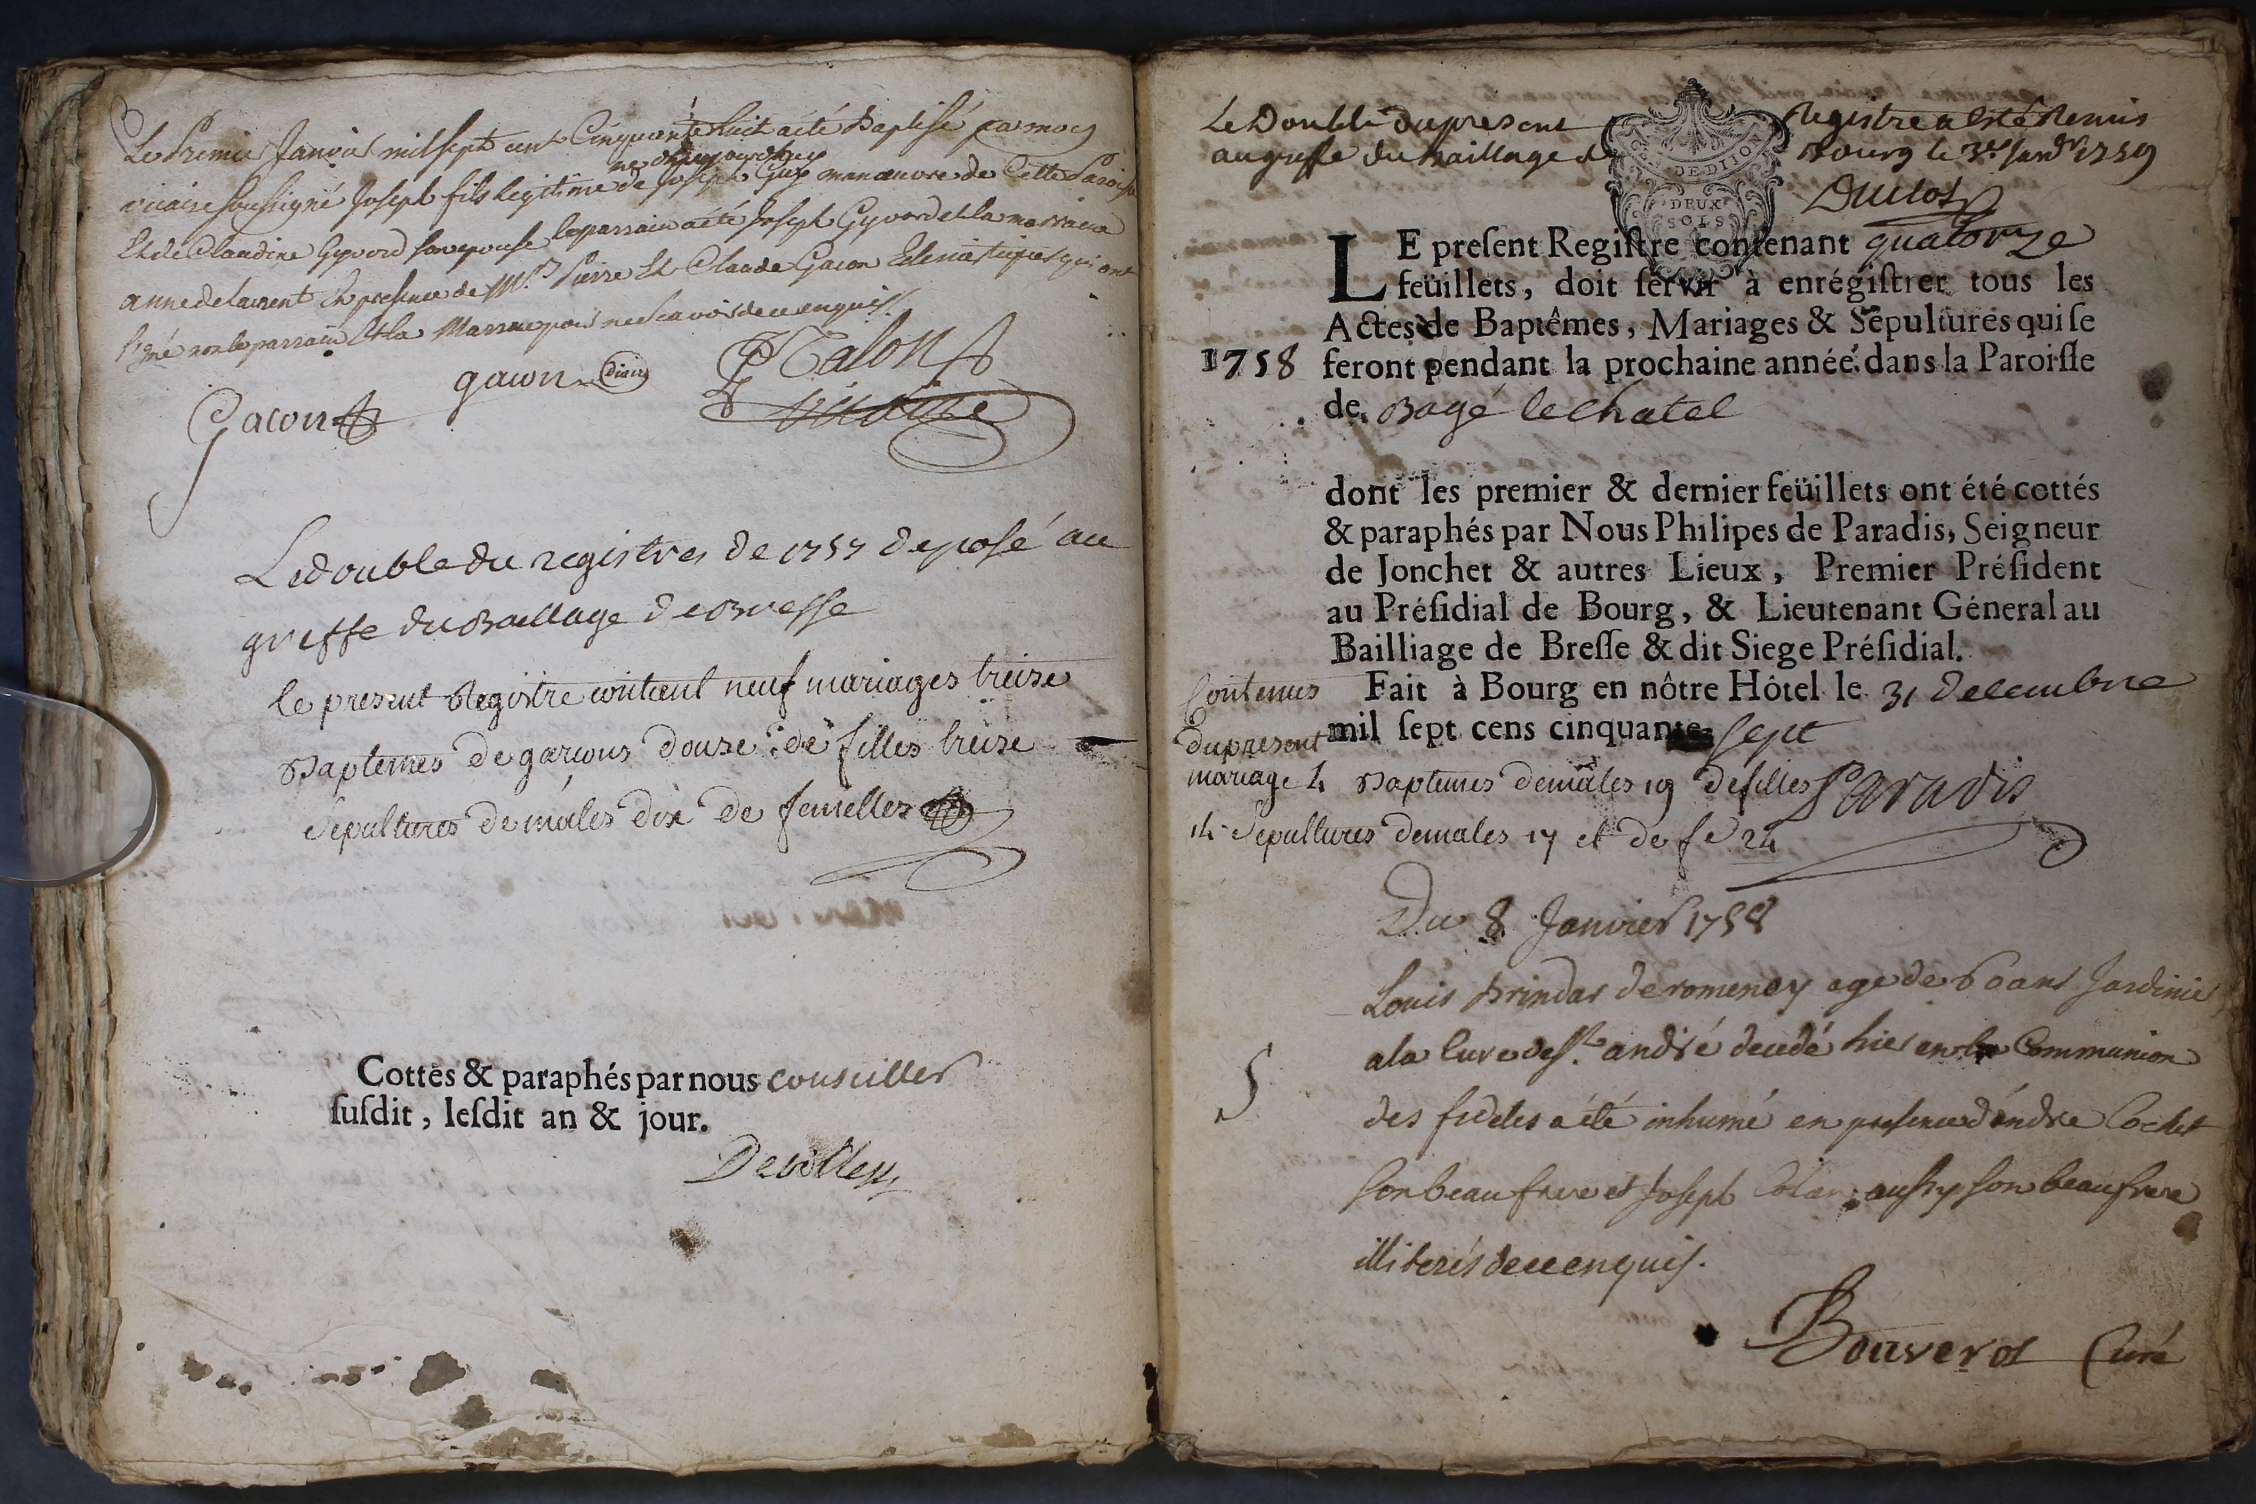 Le Premier Janvier mil sept cent Cinquante huit a été Baptisé par moy
né
vicaire soussigné Joseph fils legitime de Joseph Guy manœuvre de Cette Paroisse
Et de Claudine Gyvord son epouse le parrain a été Joseph Gyvord et la marraine
anne delaurent En presence de Mrs Pierre Et Claude Gacon Eclesiastiques qui ont
signé non le parrain Et la Marraine pour ne scavoir de ce enquis.
Gacon
gacon
Talon
vicaire
Le double du registres de 1757 deposé au
greffe du Baillage de Bresse
le present Registre contient neuf mariages treise
Baptemes de garçons douse de filles treise
sepultures de mâles dix de femelles
Cottés & paraphés par nous conseiller
suſdit, leſdit an & jour.
Le Double du present Registre a esté Remis
au greffe du Baillage de Bourg le 3e Janvr 1759
Duclos
DEUX
SOLS
LE preſent Regiſtre contenant quatorze
feüillets, doit ſervir à enrégiſtrer tous les
Actes de Baptêmes, Mariages & Sépultures qui ſe
1758 feront pendant la prochaine année dans la Paroiſſe
de Bagé le Chatel
dont les premier & dernier feüillets ont été cottés
& paraphés par Nous Philipes de Paradis, Seigneur
de Jonchet & autres Lieux, Premier Préſident
au Préſidial de Bourg, & Lieutenant Géneral au
Bailliage de Breſſe & dit Siege Préſidial.
Contenus Fait à Bourg en nôtre Hôtel le 31 decembre
mil ſept cens cinquante sept
du present
mariage 4 Baptemes de mâles 19 de filles
Paradis
14 Sepultures de males 17 et de fe 24
Du 8 Janvier 1758
Louis Brindas de romenay age de 60 ans Jardinier
a la Cure de St andré decedé hier en la Communion
S
des fideles a été inhumé en presence d'andre Cochet
son beau frere et Joseph aussy son beau frere
illiterés de ce enquis.
Bouverot Curé